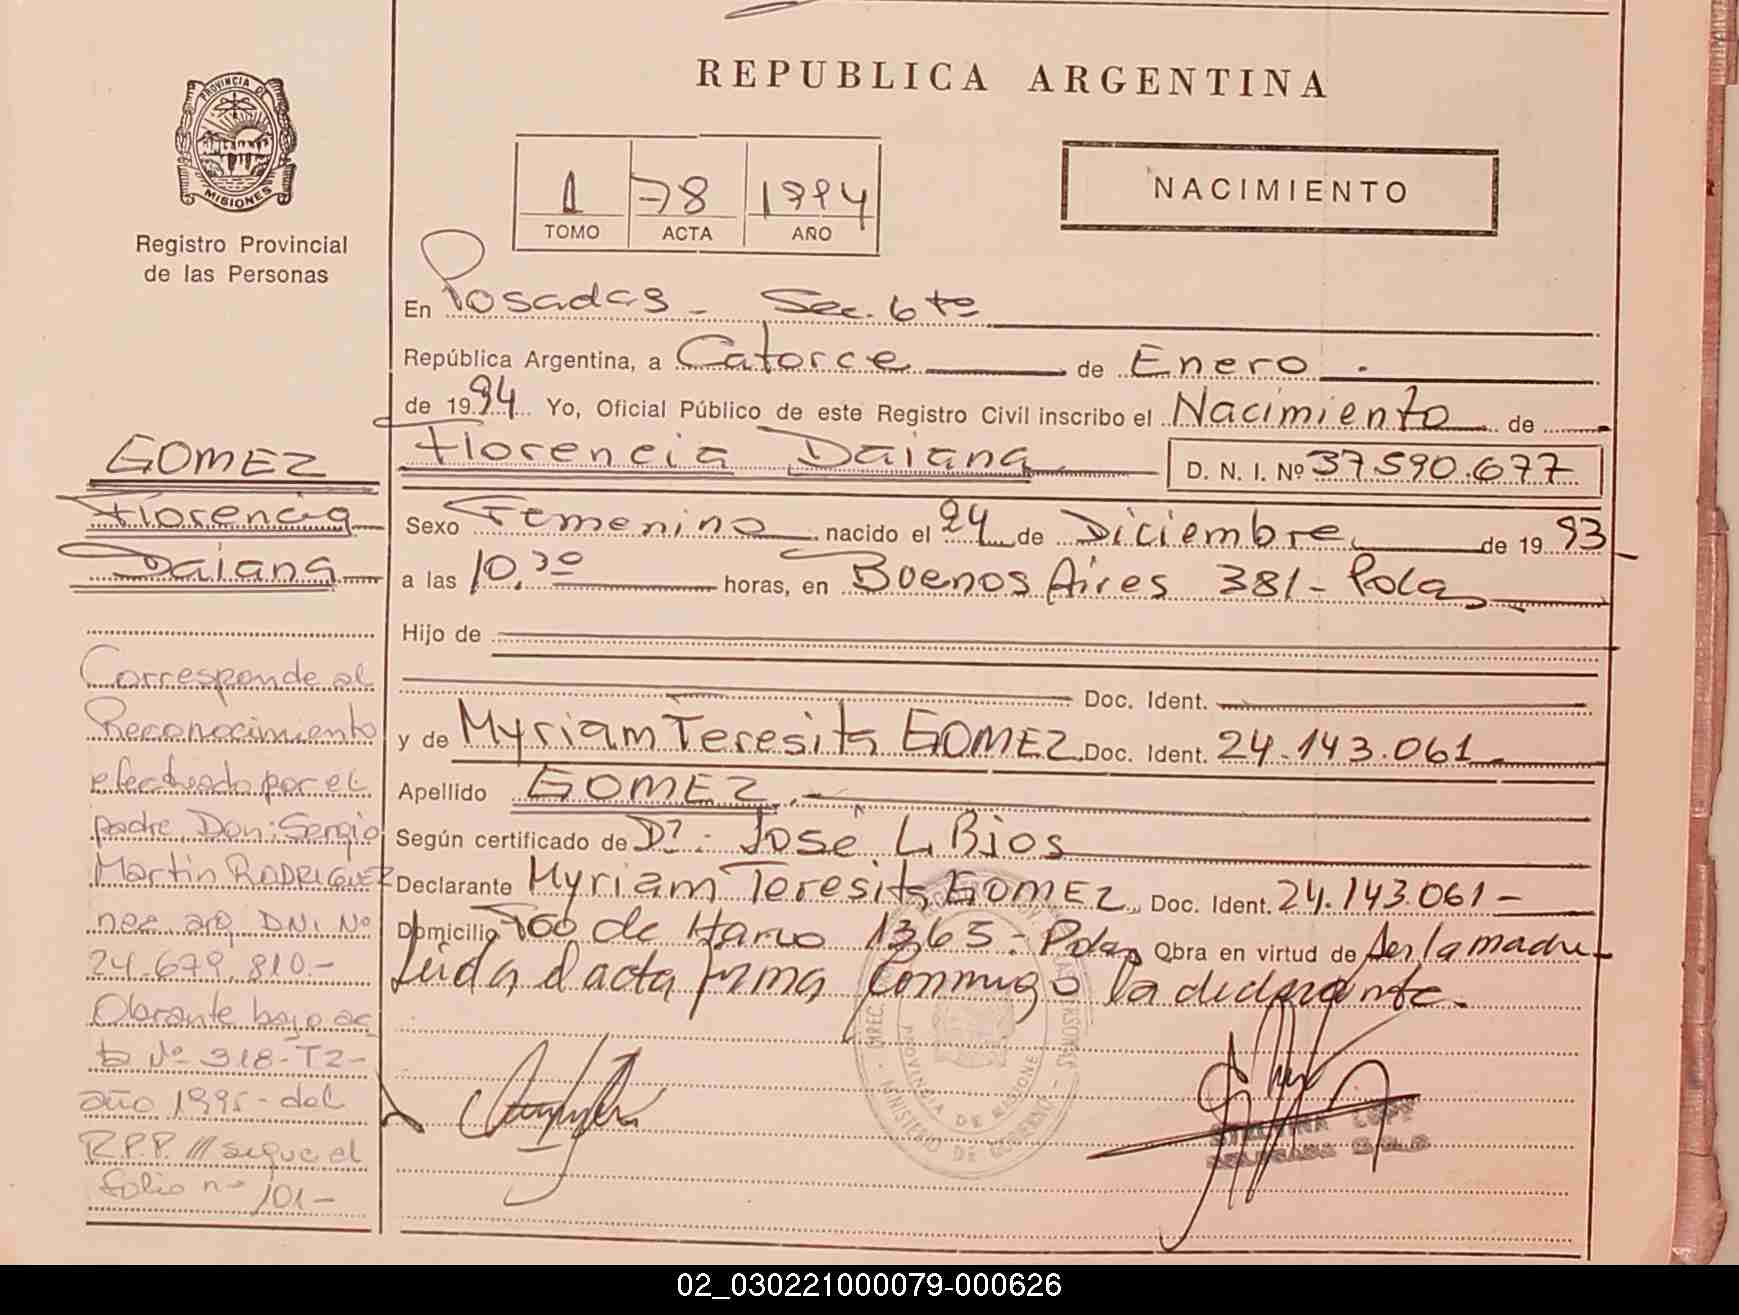 REPUBLICA ARGENTINA
PROVINCIA DE
MISIONES
Registro Provincial
de las Personas
1 78 1994
TOMO ACTA AÑO
NACIMIENTO
En Posadas - Sec. 6ta
República Argentina, a Catorce de Enero.
de 1994 Yo, Oficial Público de este Registro Civil inscribo el Nacimiento de
Florencia Daiana D. N. I. Nº 37.590.677
Sexo Femenino nacido el 24 de Diciembre de 1993
a las 10,30 horas, en Buenos Aires 381 - Pdas
Hijo de
Doc. Ident.
y de Myriam Teresita GOMEZ Doc. Ident. 24.143.061
Apellido GOMEZ
Según certificado de Dr. José L. Bios
Declarante Myriam Teresita GOMEZ Doc. Ident. 24.143.061-
Domicilio de 1365 - Pdas Obra en virtud de ser la madre
Leída el acta firma conmigo la declarante.
GOMEZ
Florencia
Daiana
Corresponde al
Reconocimiento
efectuado por el
padre Don: Sergio
Martin RODRIGUEZ
nac. arg. DNI Nº
24.679.810.-
Obrante bajo ac
ta Nº 318-T2-
año 1995 - del
R.P.P. /// sigue el
folio nº 101-
PROVINCIA DE MISIONES
MINISTERIO DE GOBIERNO
02_030221000079-000626